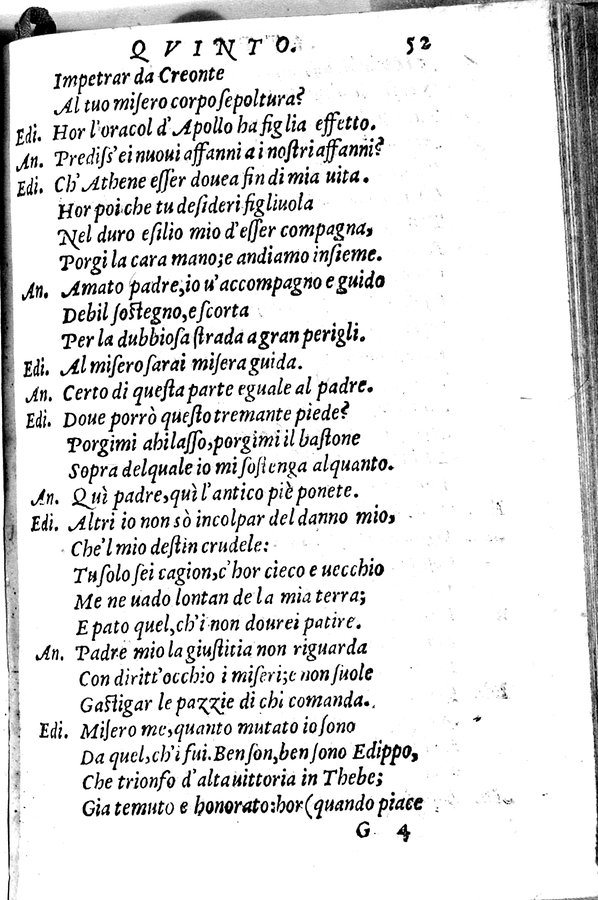 QVINTO. 52
Impetrar da Creonte
Al tuo miſero corpo ſepoltura?
Edi. Hor l'oracol d'Apollo ha figlia effetto.
An. Prediſs'ei nuoui affanni a i noſtri affanni?
Edi. Ch'Athene eſſer douea fin di mia uita.
Hor poi che tu deſideri figliuola
Nel duro eſilio mio d'eſſer compagna,
Porgi la cara mano; e andiamo inſieme.
An. Amato padre, io u'accompagno e guido
Debil ſoſtegno, e ſcorta
Per la dubbioſa ſtrada a gran perigli.
Edi. Al miſero ſarai miſera guida.
An. Certo di queſta parte eguale al padre.
Edi. Doue porrò queſto tremante piede?
Porgimi ahi laſſo, porgimi il baſtone
Sopra del quale io mi ſoſtenga alquanto.
An. Quì padre, quì l'antico piè ponete.
Edi. Altri io non sò incolpar del danno mio,
Che'l mio deſtin crudele:
Tu ſolo ſei cagion, c'hor cieco e uecchio
Me ne uado lontan de la mia terra;
E pato quel, ch'i non dourei patire.
An. Padre mio la giuſtitia non riguarda
Con diritt'occhio i miſeri; e non ſuole
Gaſtigar le pazzie di chi comanda.
Edi. Miſero me, quanto mutato io ſono
Da quel, ch'i fui. Ben ſon, ben ſono Edippo,
Che trionfo d'alta uittoria in Thebe;
Gia temuto e honorato: hor (quando piace
G 4